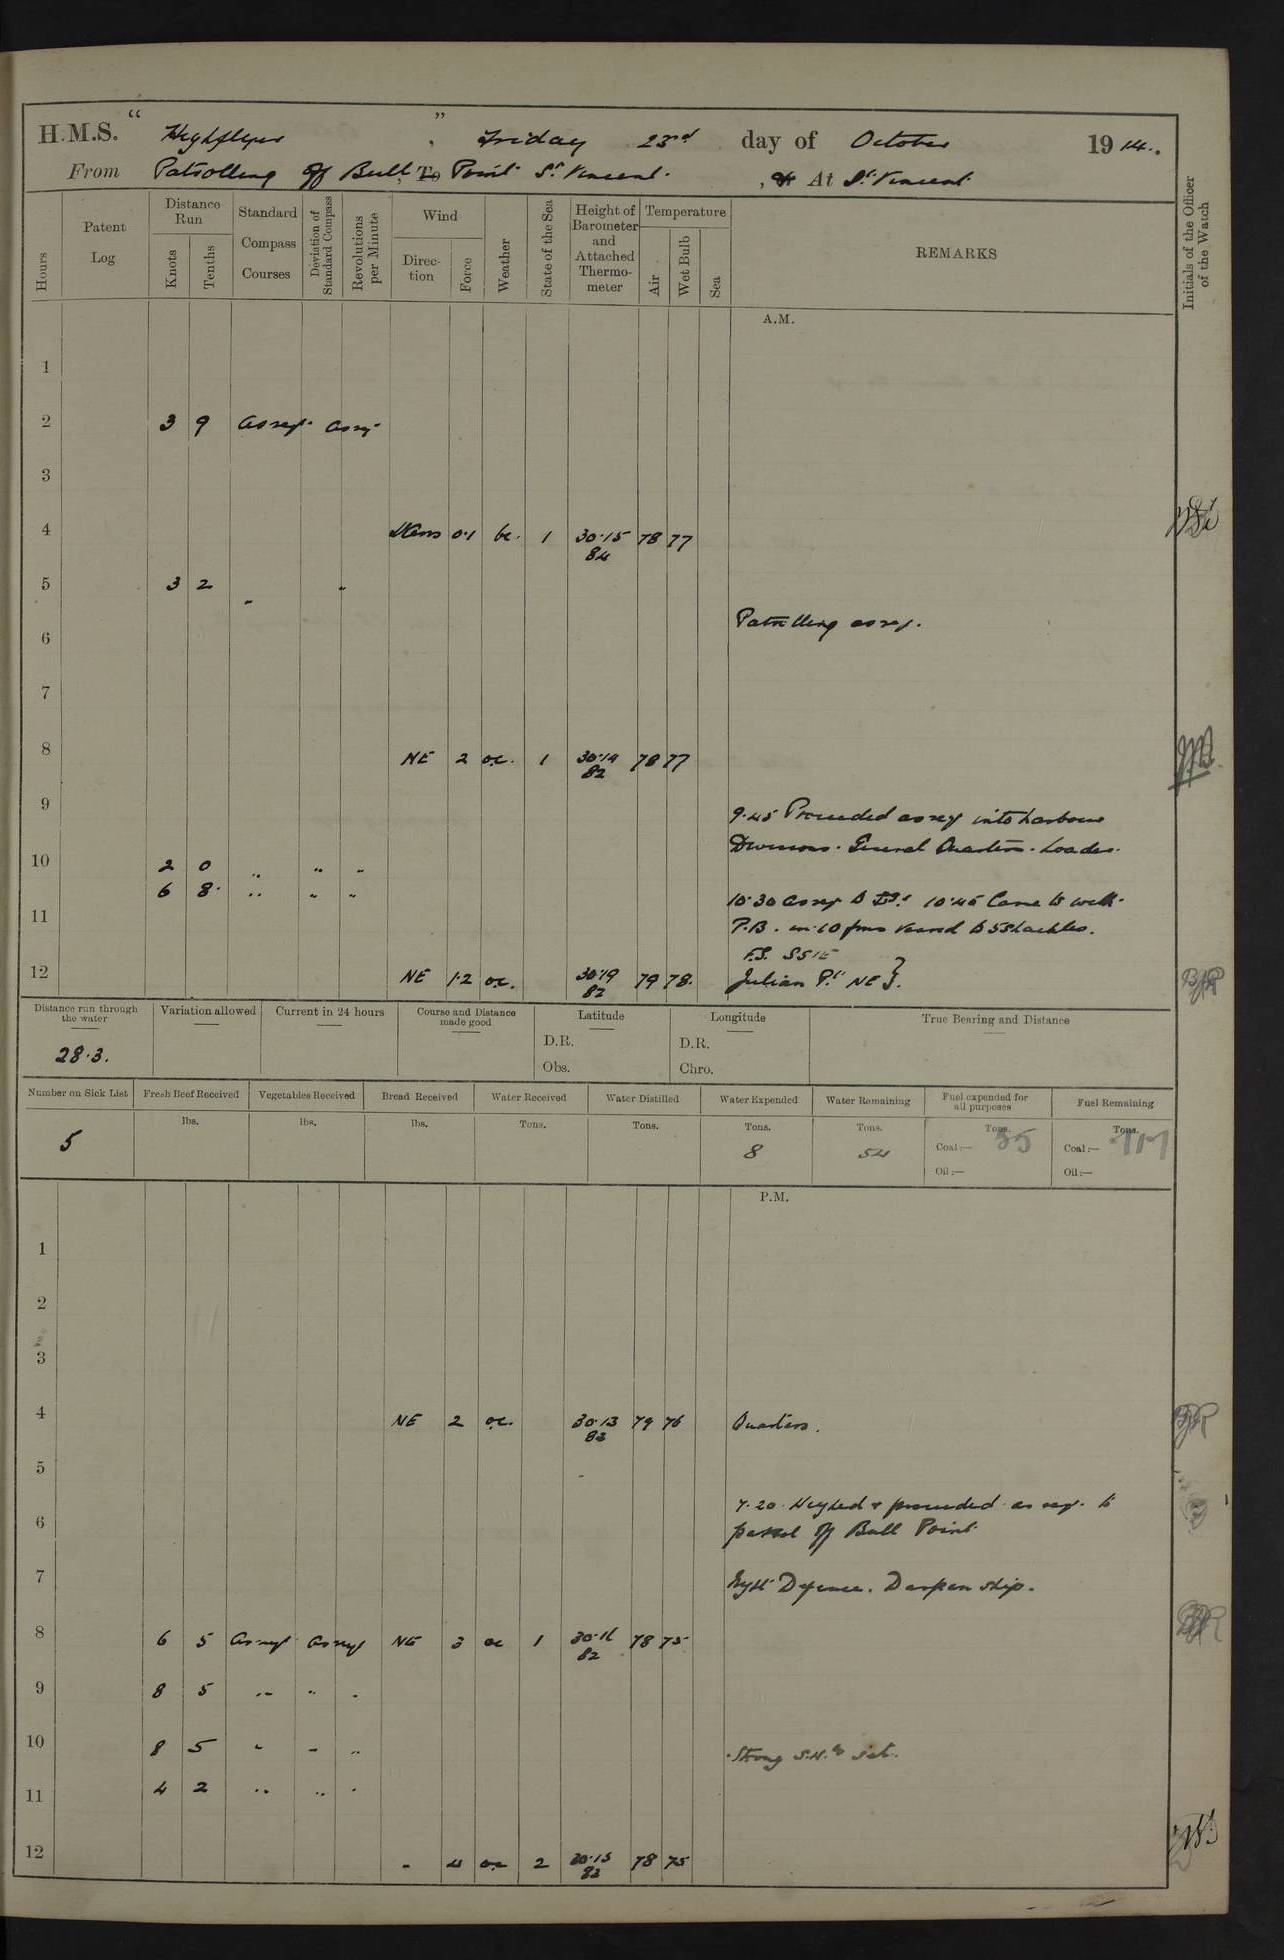 H.M.S. “Highflyer”, Friday 23rd day of October 1914.
From Patrolling off Bull, To Point St Vincent, or At St Vincent
Hours
Patent Log
Distance Run
Knots
Tenths
Standard Compass Courses
Deviation of Standard Compass
Revolutions per Minute
Wind
Direction
Force
Weather
State of the Sea
Height of Barometer and Attached Thermometer
Temperature
Air
Wet Bulb
Sea
REMARKS
Initials of the Officer of the Watch
A.M.
1
2 3 9 as req as req
3
4 0.1 bc. 1 30.15 78 77
84
5 3 2 "
Patrolling as req.
6
7
8 NE 2 oc. 1 30.14 78 77
82
9
9.45 Proceeded as req into harbour
Divisions. General Quarters. Loader.
10 2 0 " " "
6 8 " " "
10.30 as req 10.45 Came to with
11
P.B. in 10 fms veered to 5 shackles.
F.S. SSIE
12 NE 1.2 oc. 30.19 79 78. Julian Pt NE }.
82
Distance run through the water
Variation allowed
Current in 24 hours
Course and Distance made good
Latitude
Longitude
True Bearing and Distance
28.3.
D.R.
Obs.
D.R.
Chro.
Number on Sick List
Fresh Beef Received
Vegetables Received
Bread Received
Water Received
Water Distilled
Water Expended
Water Remaining
Fuel expended for all purposes
Fuel Remaining
5
lbs.
lbs.
lbs.
Tons.
Tons.
Tons.
8
Tons.
54
Tons.
Coal:— 35
Oil:—
Tons.
Coal:—
Oil:—
P.M.
1
2
3
4 NE 2 oc. 30.13 79 76 Quarters.
83
5
7.20 Weighed & proceeded as req. to
6
patrol off Bull Point
7
Night Defence. Darken ship.
8 6 5 as req as req NE 3 oc 1 30.16 78 75
82
9 8 5 " " "
10 8 5 " " "
Strong set.
11 4 2 " " "
12 " 4 oc 2 30.15 78 75
82